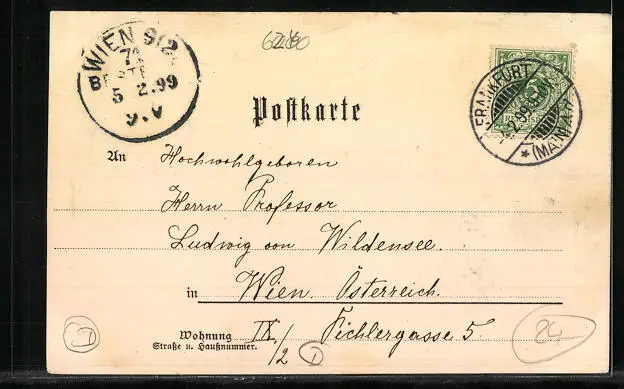 6280
WIEN 9/2
71
BESTELLT
5 2.99
9.V
Postkarte
FRANKFURT
(MAIN)
An
Hochwohlgeboren
Herrn Professor
Ludwig von Wildensee.
in Wien. Österreich.
Wohnung IX/2 Pichlergasse 5.
Straße u. Hausnummer.
24